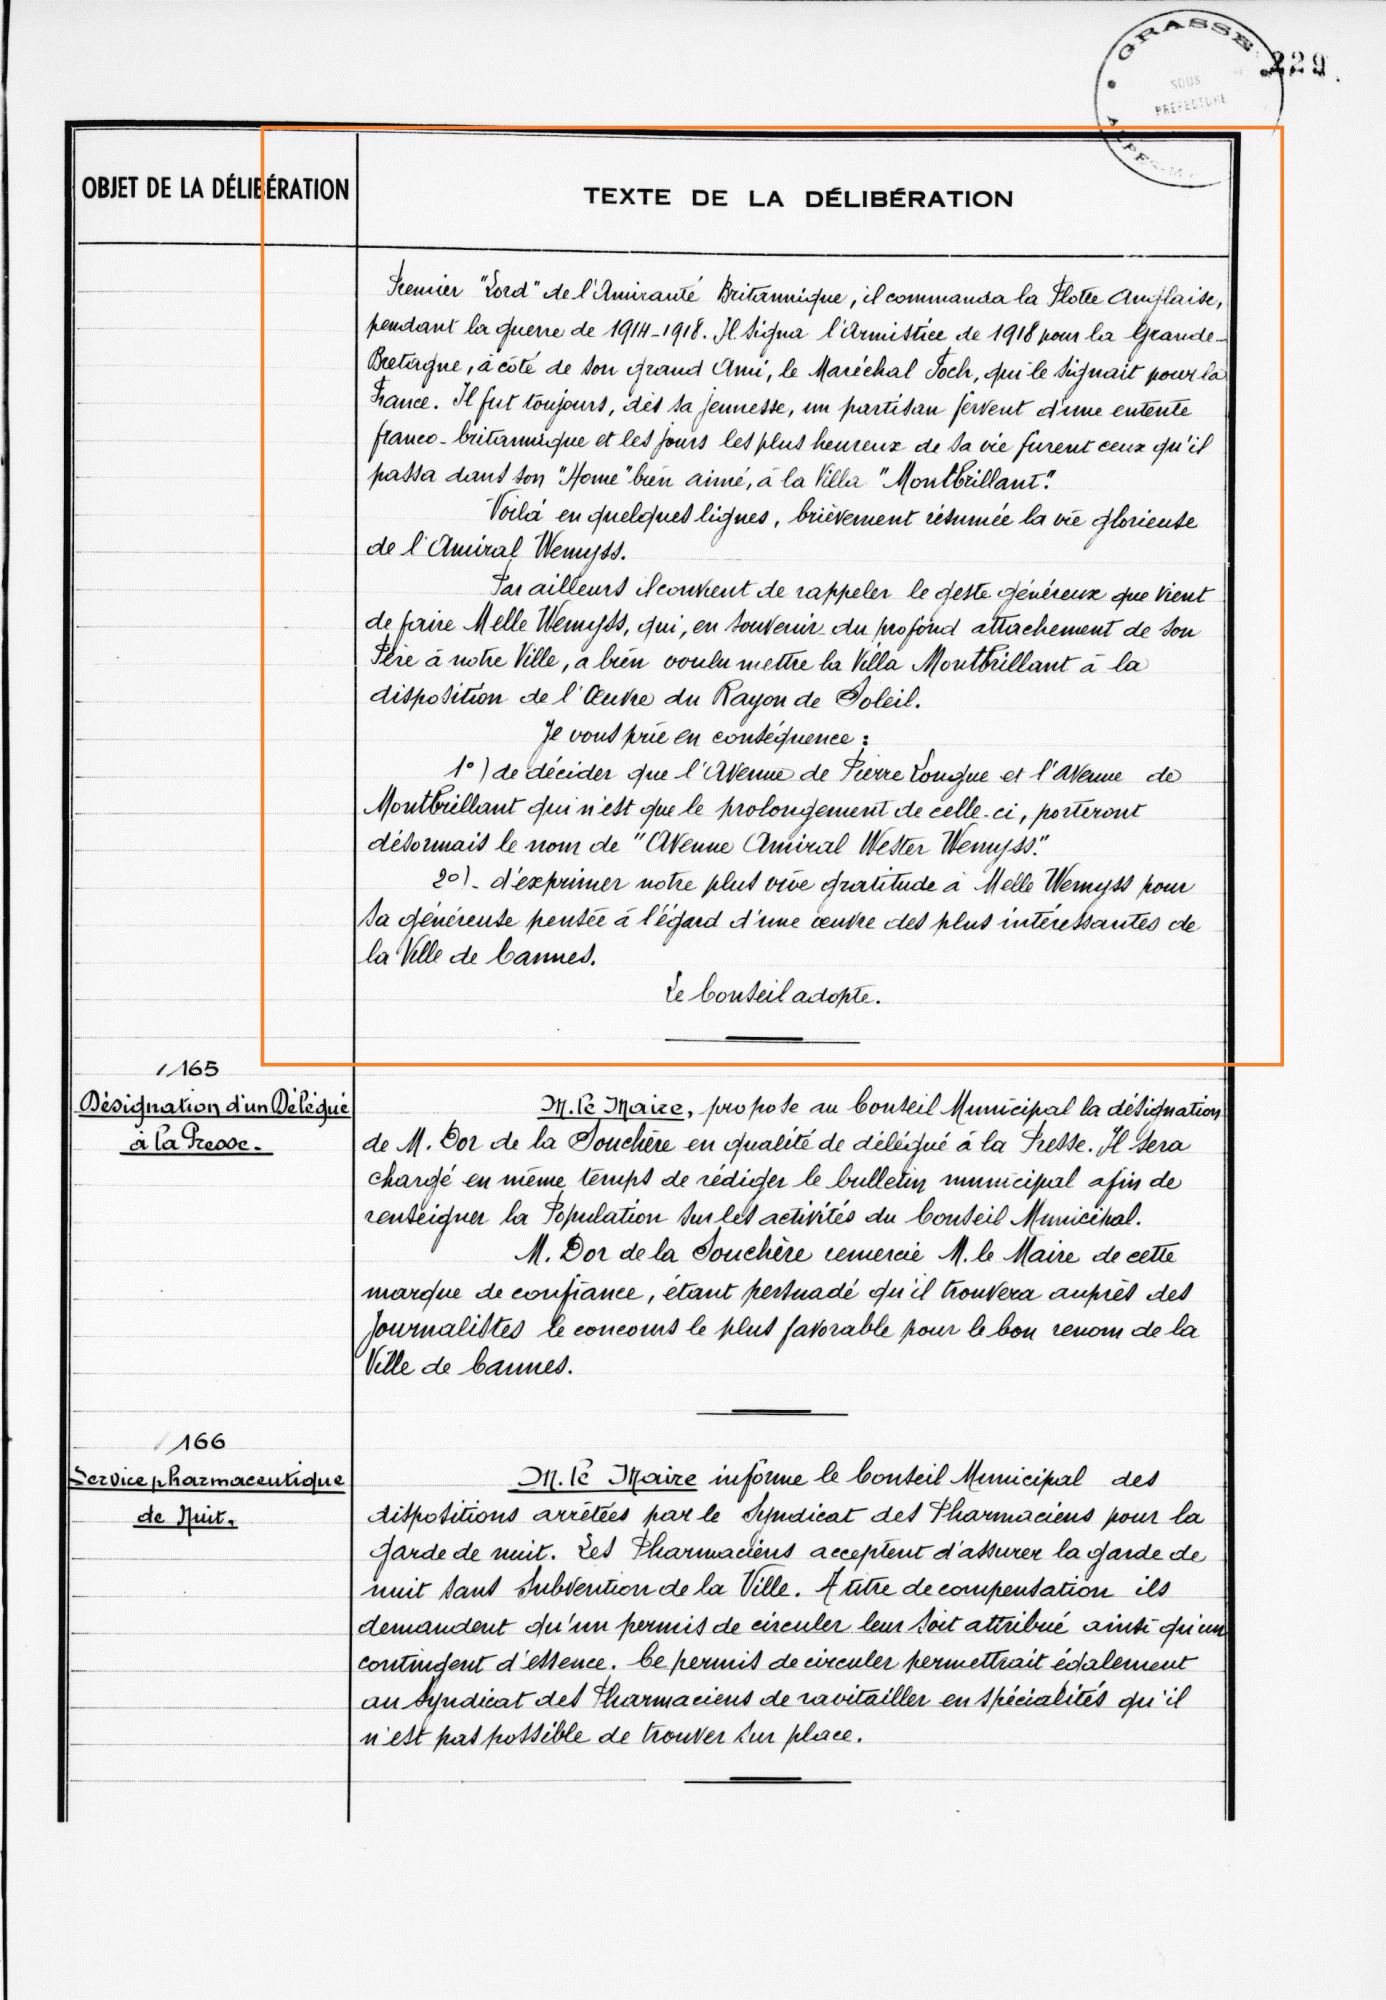 GRASSE
SOUS
PREFECTURE
229.
OBJET DE LA DÉLIBÉRATION
TEXTE DE LA DÉLIBÉRATION
Premier "Lord" de l'Amirauté Britannique, il commanda la Flotte Anglaise,
pendant la guerre de 1914-1918. Il signa l'Armistice de 1918 pour la Grande-
Bretagne, à côté de son grand Ami, le Maréchal Foch, qui le signait pour la
France. Il fut toujours, dès sa jeunesse, un partisan fervent d'une entente
franco-britannique et les jours les plus heureux de sa vie furent ceux qu'il
passa dans son "Home" bien aimé, à la Villa "Montbrillant".
Voilà en quelques lignes, brièvement résumée la vie glorieuse
de l'Amiral Wemyss.
Par ailleurs il convient de rappeler le geste généreux que vient
de faire Melle Wemyss, qui, en souvenir du profond attachement de son
Père à notre Ville, a bien voulu mettre la Villa Montbrillant à la
disposition de l'Œuvre du Rayon de Soleil.
Je vous prie en conséquence :
1°) de décider que l'Avenue de Pierre Longue et l'Avenue de
Montbrillant qui n'est que le prolongement de celle-ci, porteront
désormais le nom de "Avenue Amiral Wester Wemyss".
2°)- d'exprimer notre plus vive gratitude à Melle Wemyss pour
sa généreuse pensée à l'égard d'une œuvre des plus intéressantes de
la Ville de Cannes.
Le Conseil adopte.
165
Désignation d'un Délégué
à la Presse.
M. le Maire, propose au Conseil Municipal la désignation
de M. Dor de la Souchère en qualité de délégué à la Presse. Il sera
chargé en même temps de rédiger le bulletin municipal afin de
renseigner la Population sur les activités du Conseil Municipal.
M. Dor de la Souchère remercie M. le Maire de cette
marque de confiance, étant persuadé qu'il trouvera auprès des
Journalistes le concours le plus favorable pour le bon renom de la
Ville de Cannes.
166
Service pharmaceutique
de Nuit.
M. le Maire informe le Conseil Municipal des
dispositions arrêtées par le Syndicat des Pharmaciens pour la
garde de nuit. Les Pharmaciens acceptent d'assurer la garde de
nuit sans subvention de la Ville. A titre de compensation ils
demandent qu'un permis de circuler leur soit attribué ainsi qu'un
contingent d'essence. Ce permis de circuler permettrait également
au Syndicat des Pharmaciens de ravitailler en spécialités qu'il
n'est pas possible de trouver sur place.